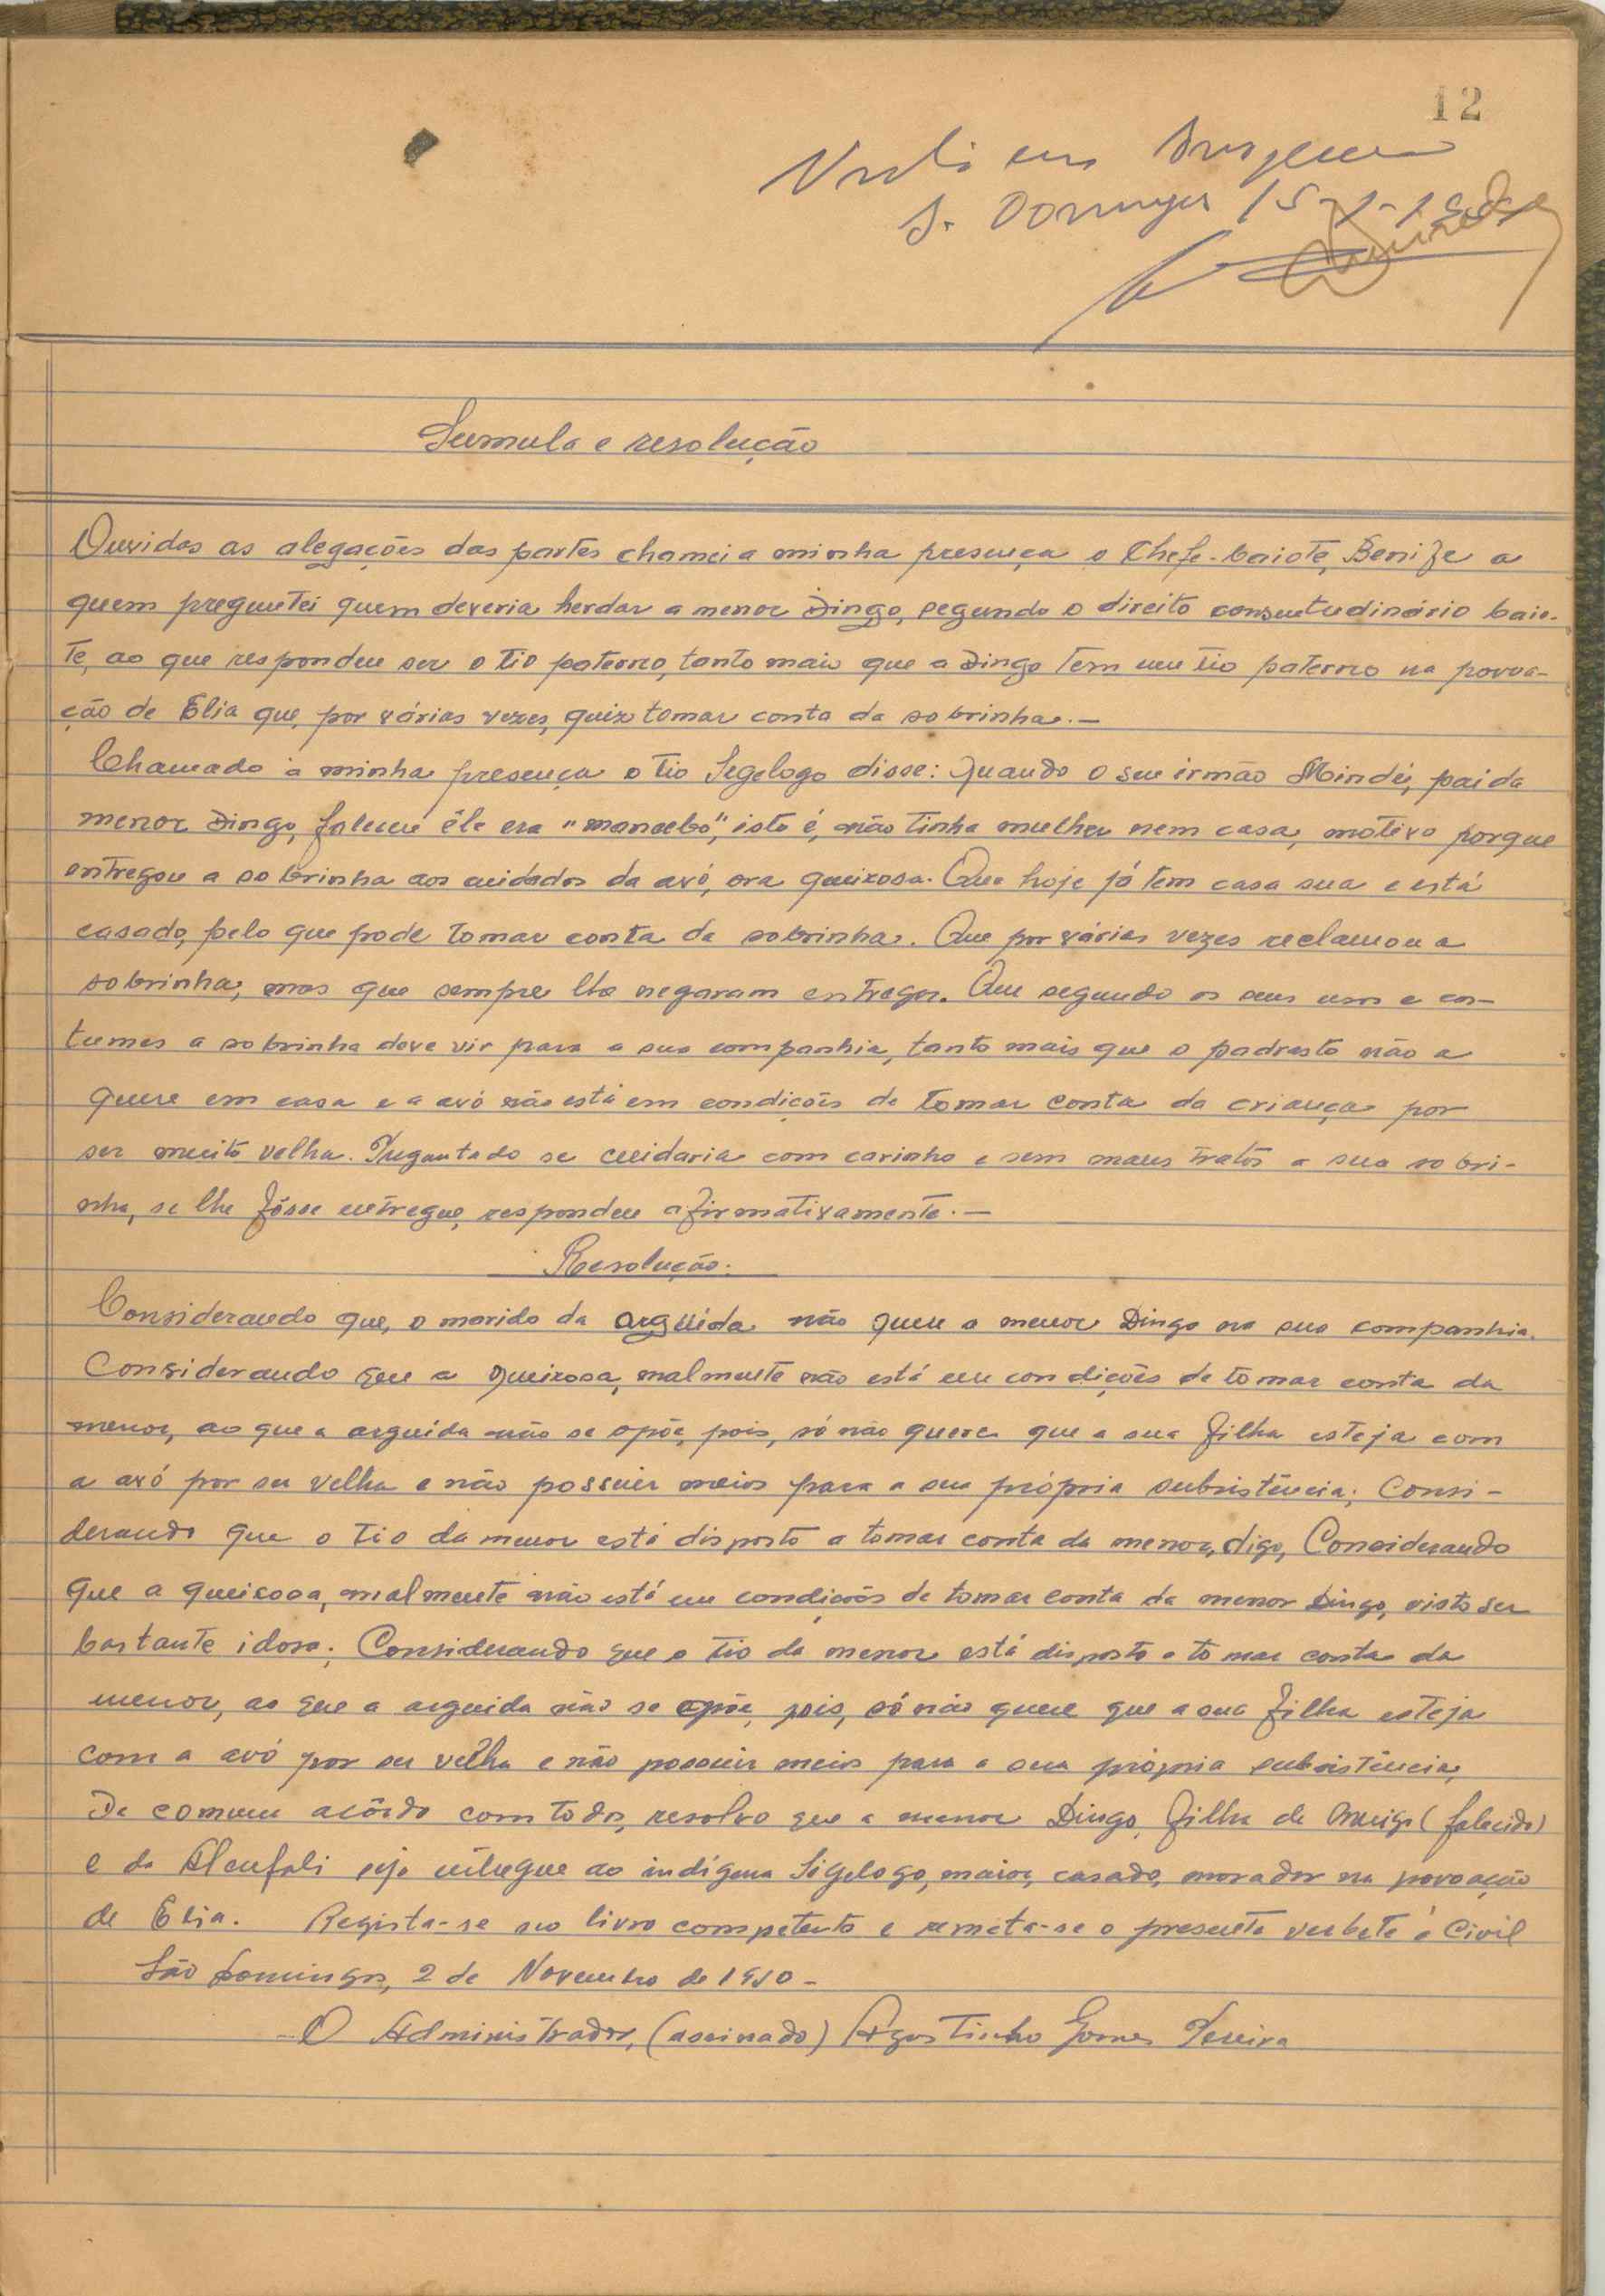 12
S. Domingos 15-1-19
Sumula e resolução
Ouvidas as alegações das partes chamei a minha presença o Chefe-baiote, Benize a
quem preguntei quem deveria herdar a menor Dingo, segundo o direito consuetudinário baio-
te, ao que respondeu ser o tio paterno, tanto mais que a Dingo tem um tio paterno na povoa-
ção de Elia que, por várias vezes, quiz tomar conta da sobrinha.—
Chamado à minha presença o tio Segelogo disse: Quando o seu irmão Mindéi, pai da
menor Dingo, faleceu êle era "mancebo", isto é, não tinha mulher nem casa, motivo porque
entregou a sobrinha aos cuidados da avó, ora queixosa. Que hoje já tem casa sua e está
casado, pelo que pode tomar conta da sobrinha. Que por várias vezes reclamou a
sobrinha, mas que sempre lha negaram entregar. Que segundo os seus usos e cos-
tumes a sobrinha deve vir para a sua companhia, tanto mais que o padrasto não a
quere em casa e a avó não está em condições de tomar conta da criança por
ser muito velha. Preguntado se cuidaria com carinho e sem maus tratos a sua sobri-
nha, se lhe fôsse entregue, respondeu afirmativamente.—
Resolução.
Considerando que, o marido da argüida não quere a menor Dingo na sua companhia.
Considerando que a queixosa, malmente não está em condições de tomar conta da
menor, ao que a arguida não se opõe, pois, só não quere que a sua filha esteja com
a avó por ser velha e não possuir meios para a sua própria subsistência; Consi-
derando que o tio da menor está disposto a tomar conta da menor, digo, Considerando
que a queixosa, malmente não está em condições de tomar conta da menor Dingo, visto ser
bastante idosa; Considerando que o tio da menor está disposto a tomar conta da
menor, ao que a arguida não se opõe, pois, só não quere que a sua filha esteja
com a avó por ser velha e não possuir meios para a sua própria subsistência,
De comum acôrdo com todos, resolvo que a menor Dingo, filha de (falecido)
e de Alenfali seja entregue ao indígena Sigelogo, maior, casado, morador na povoação
de Elia. Regista-se no livro competente e remeta-se o presente verbete á Civil
São Domingos, 2 de Novembro de 1950-
O Administrador, (assinado) Agostinho Gomes Pereira